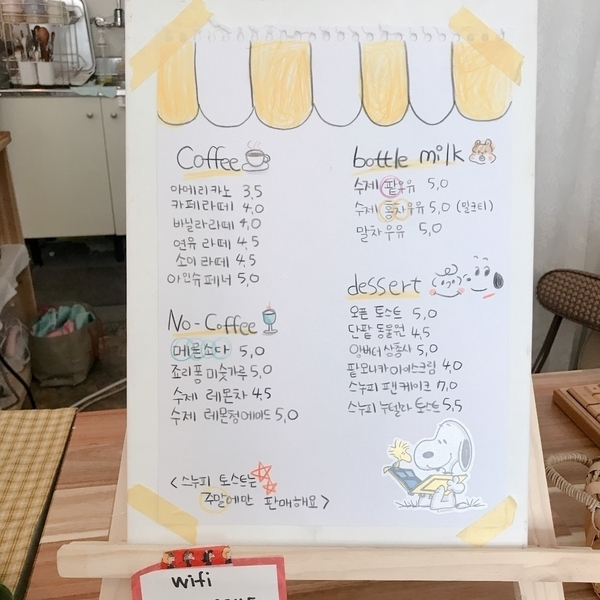 Coffee
아메리카노 3,5
카페라떼 4,0
바닐라라떼 4,0
연유 라떼 4,5
소이 라떼 4,5
아인슈페너 5,0
No-Coffee
메론소다 5,0
죠리퐁 미숫가루 5,0
수제 레몬차 4,5
수제 레몬청에이드 5,0
<스누피 토스트는
주말에만 판매해요>
bottle milk
수제 팥우유 5,0
수제 홍차우유 5,0 (밀크티)
말차우유 5,0
dessert
오픈 토스트 5,0
단팥 동물원 4,5
앙버터 상종사 5,0
팥모나카아이스크림 4,0
스누피 팬케이크 7,0
스누피 누텔라 토스트 5,5
wifi